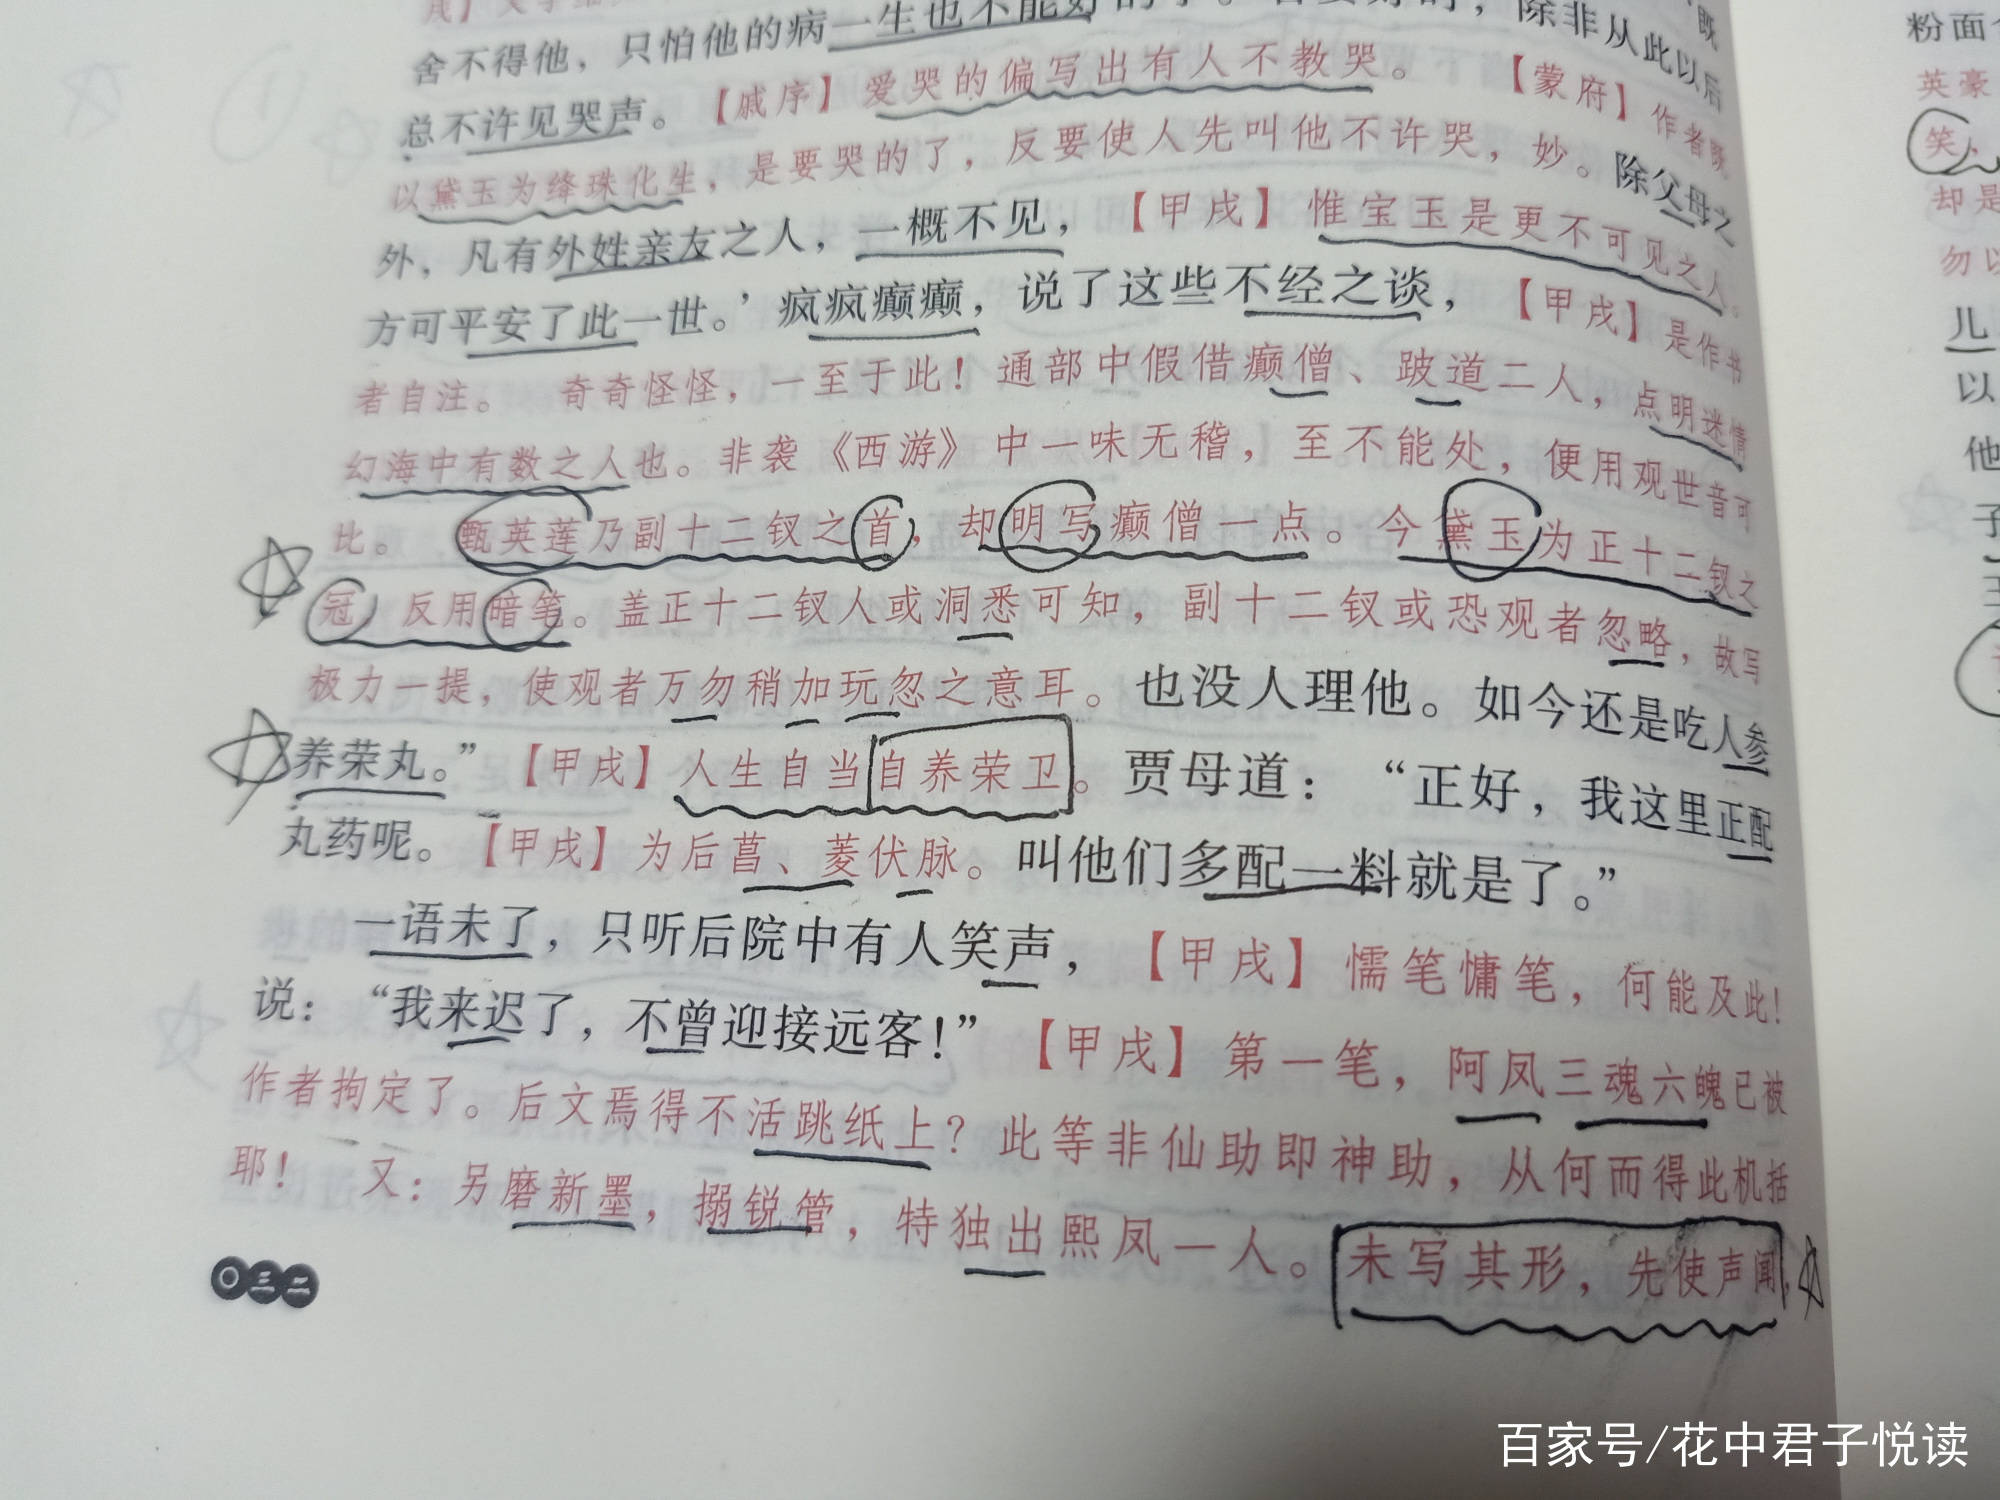 舍不得他，只怕他的病一生也不能好的了。若要好时，除非从此以后
总不许见哭声。【戚序】爱哭的偏写出有人不教哭。【蒙府】作者既
以黛玉为绛珠化生，是要哭的了，反要使人先叫他不许哭，妙。除父母之
外，凡有外姓亲友之人，一概不见，【甲戌】惟宝玉是更不可见之人。
方可平安了此一世。’疯疯癫癫，说了这些不经之谈，【甲戌】是作书
者自注。　奇奇怪怪，一至于此！通部中假借癫僧、跛道二人，点明迷情
幻海中有数之人也。非袭《西游》中一味无稽，至不能处，便用观世音可
比。　甄英莲乃副十二钗之首，却明写癫僧一点。今黛玉为正十二钗之
冠，反用暗笔。盖正十二钗人或洞悉可知，副十二钗或恐观者忽略，故写
极力一提，使观者万勿稍加玩忽之意耳。也没人理他。如今还是吃人参
养荣丸。”【甲戌】人生自当自养荣卫。贾母道：“正好，我这里正配
丸药呢。【甲戌】为后菖、菱伏脉。叫他们多配一料就是了。”
一语未了，只听后院中有人笑声，【甲戌】懦笔慵笔，何能及此！
说：“我来迟了，不曾迎接远客！”【甲戌】第一笔，阿凤三魂六魄已被
作者拘定了。后文焉得不活跳纸上？此等非仙助即神助，从何而得此机括
耶！　又：另磨新墨，搦锐管，特独出熙凤一人。未写其形，先使声闻，
〇三二
粉面
英豪
笑，
却是
勿以
儿
以
他
子
百家号/花中君子悦读